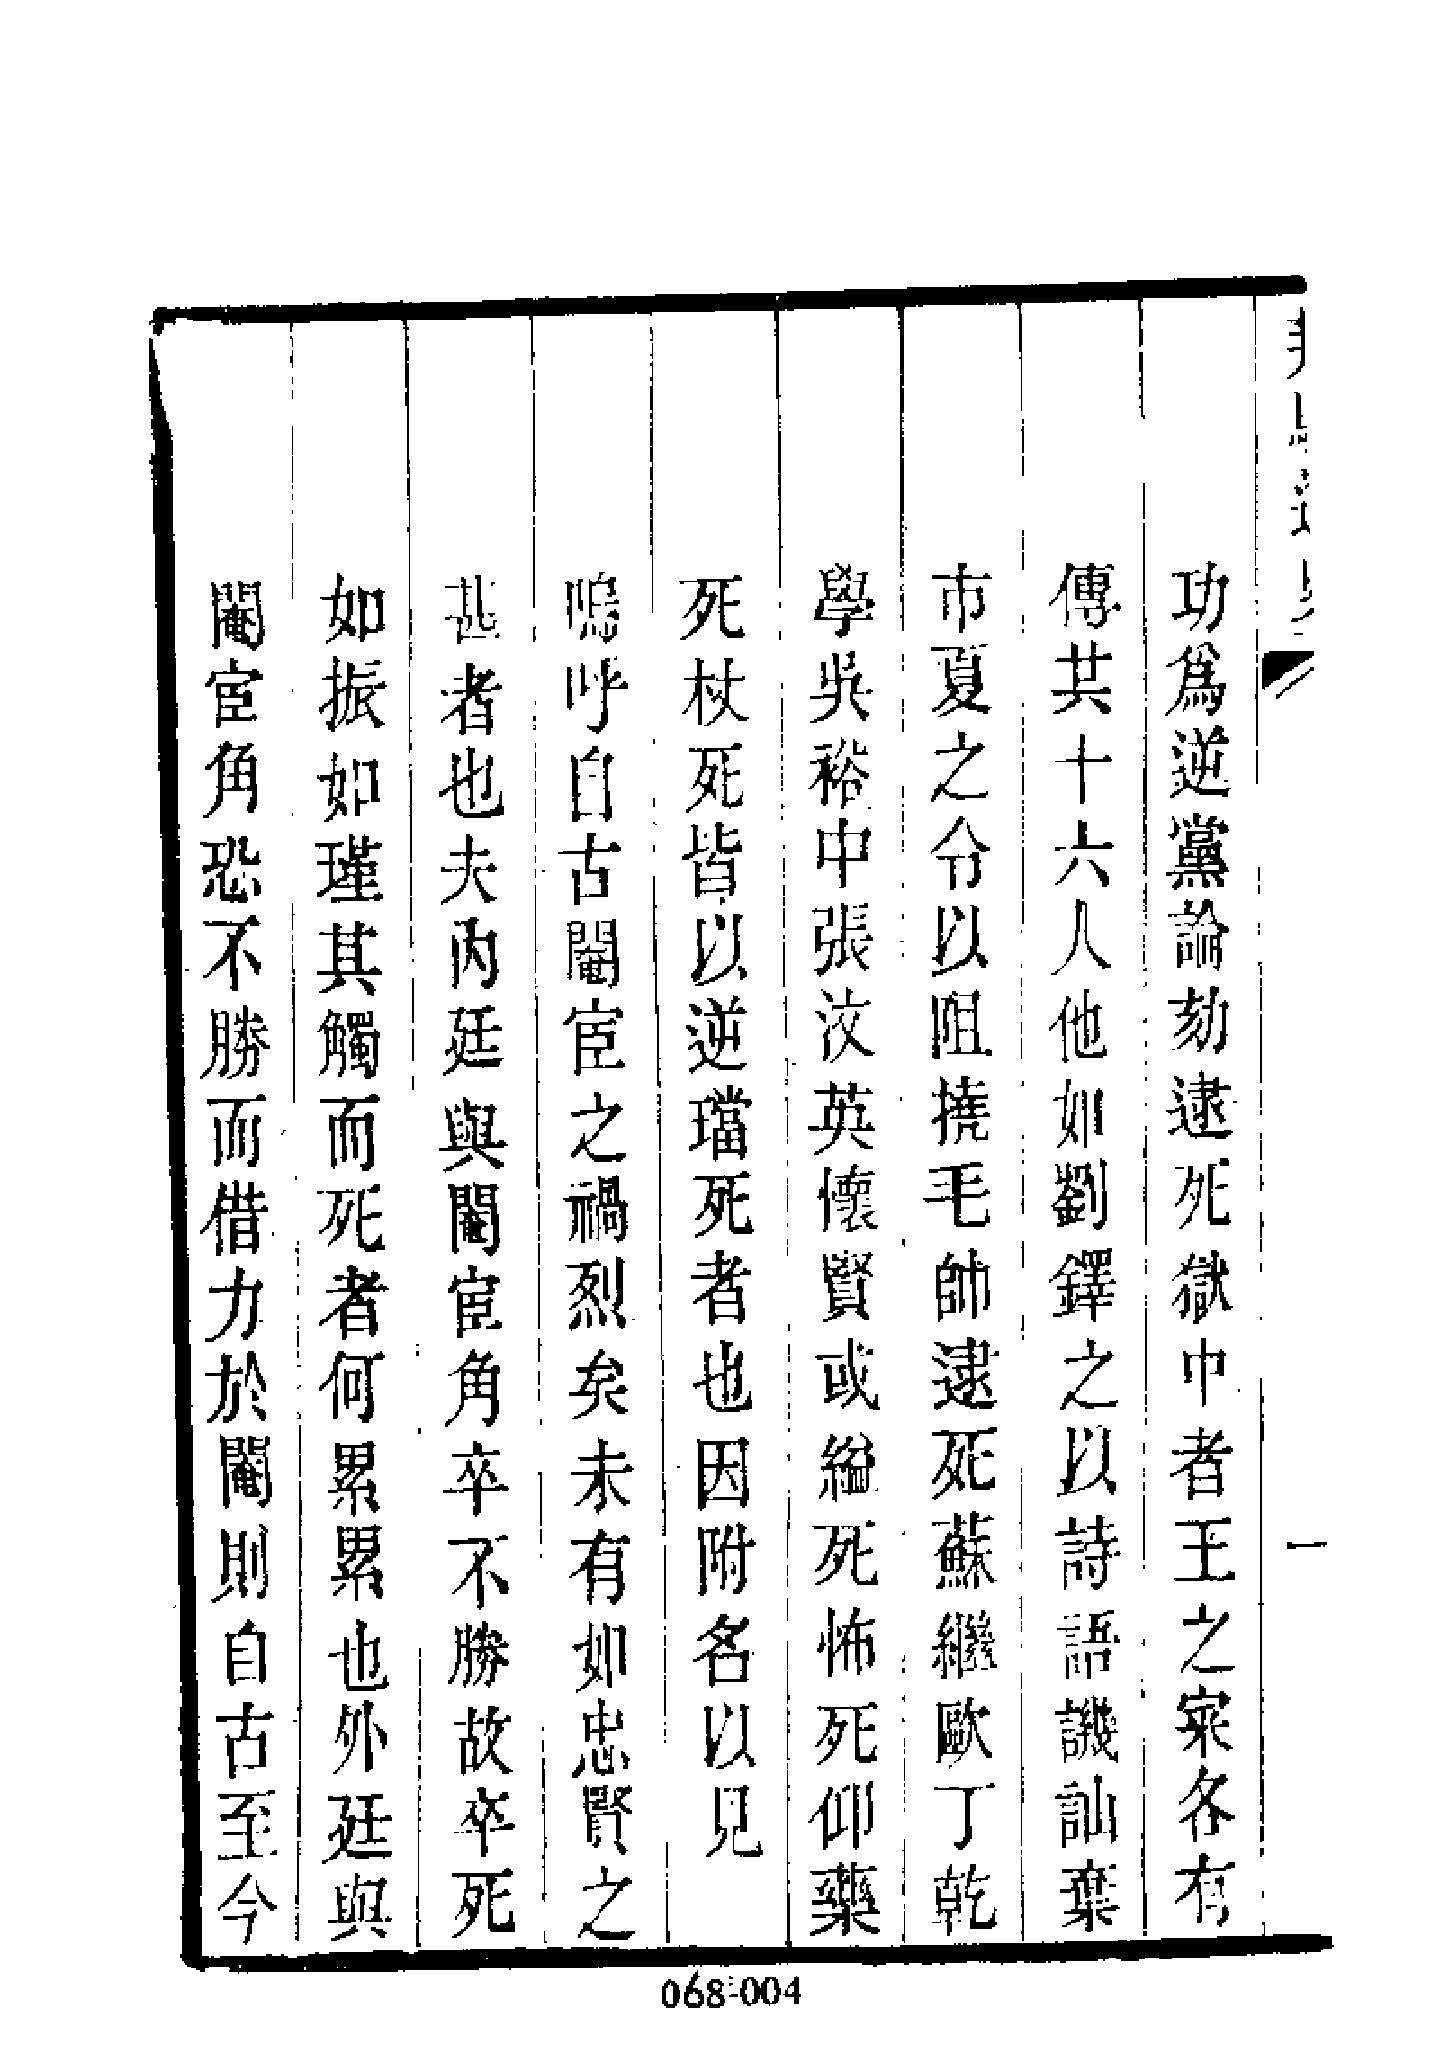 功爲逆黨論劾逮死獄中者王之寀各有
傳共十六人他如劉鐸之以詩語譏訕棄
市夏之令以阻撓毛帥逮死蘇繼歐丁乾
學吳裕中張汶英懷賢或縊死怖死仰藥
死杖死皆以逆璫死者也因附名以見
嗚呼自古閹宦之禍烈矣未有如忠賢之
甚者也夫內廷與閹宦角卒不勝故卒死
如振如瑾其觸而死者何累累也外廷與
閹宦角恐不勝而借力於閹則自古至今
068-004